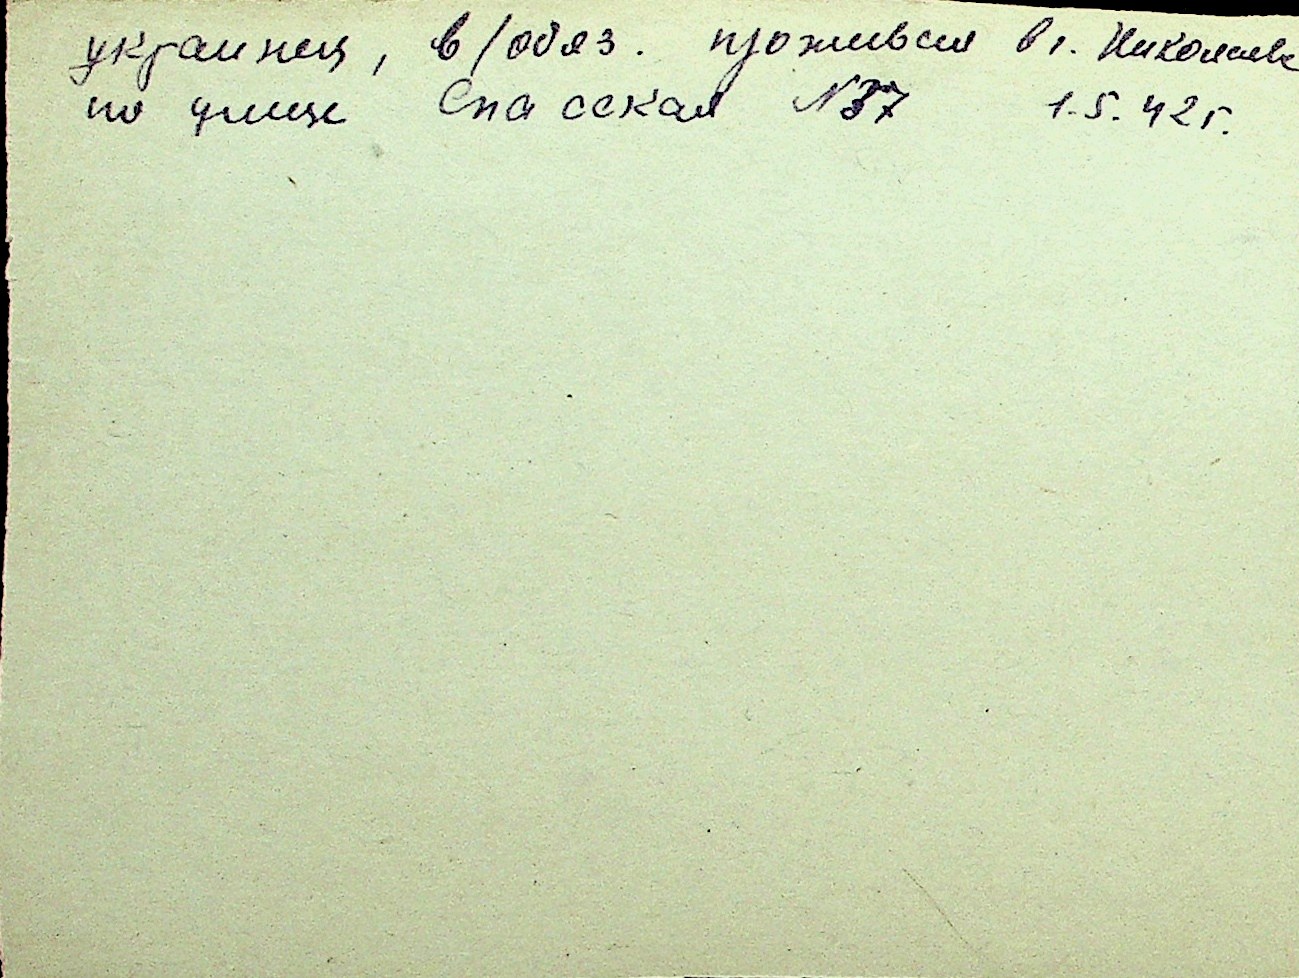 украинец, в/обяз. проживал в г. Николаеве
по улице Спасская № 37 1.5.42 г.